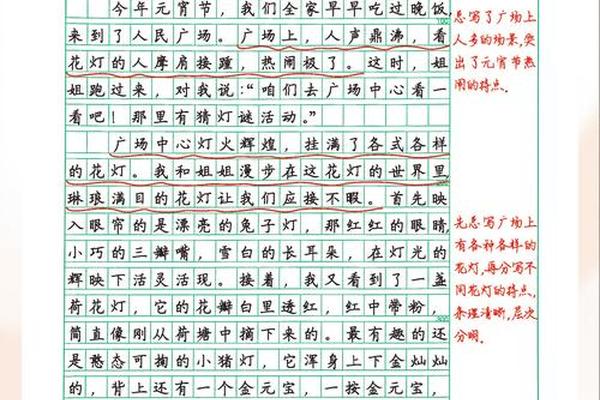 今年元宵节，我们全家早早吃过晚饭，
来到了人民广场。广场上，人声鼎沸，看
花灯的人摩肩接踵，热闹极了。这时，姐
姐跑过来，对我说：“咱们去广场中心看一
看吧！那里有猜灯谜活动。”
广场中心灯火辉煌，挂满了各式各样
的花灯。我和姐姐漫步在这花灯的世界里，
琳琅满目的花灯让我们应接不暇。首先映
入眼帘的是漂亮的兔子灯，那红红的眼睛，
小巧的三瓣嘴，雪白的长耳朵，在灯光的
辉映下活灵活现。接着，我又看到了一盏
荷花灯，它的花瓣白里透红，红中带粉，
简直像刚从荷塘中摘下来的。最有趣的还
是憨态可掬的小猪灯，它浑身上下金灿灿
的，背上还有一个金元宝，一按金元宝，
100
300
总写了广场上
人多的场景，突
出了元宵节热
闹的特点。
先总写广场上
有各种各样的
花灯，再分写不
同花灯的特点，
条理清晰，层次
分明。